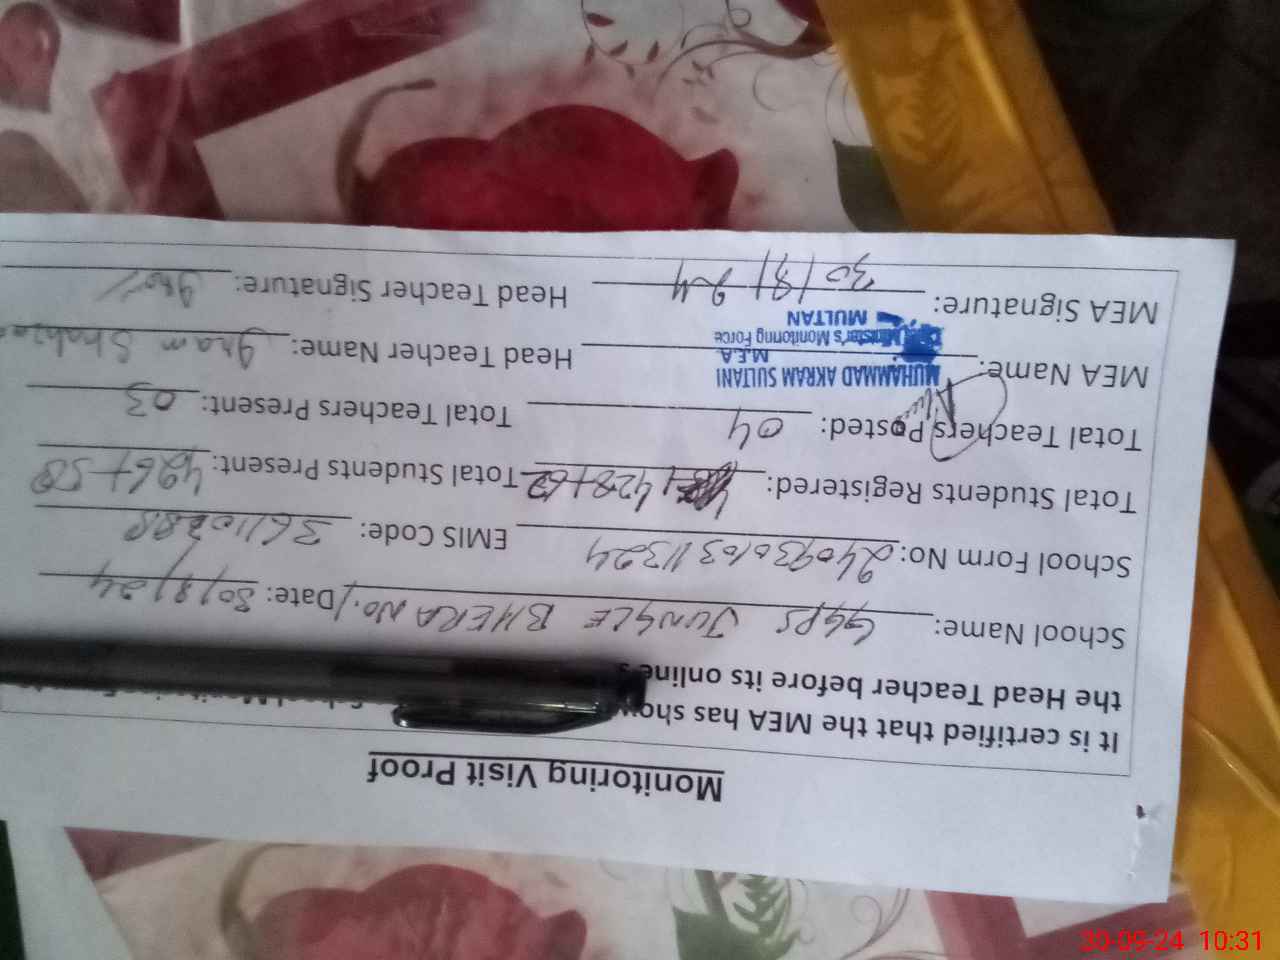 Monitoring Visit Proof
It is certified that the MEA has
the Head Teacher before its online
School Name: GGPS JUNGLE BHERA NO.1 Date: 30/9/24
School Form No: EMIS Code:
Total Students Registered: 428+ Total Students Present: 426+50
Total Teachers Posted: 04 Total Teachers Present: 03
MUHAMMAD AKRAM SULTANI
M.E.A.
MEA Name: Head Teacher Name: Shahzad
Minister's Monitoring Force
MULTAN
MEA Signature: 30/9/24 Head Teacher Signature:
30-09-24 10:31